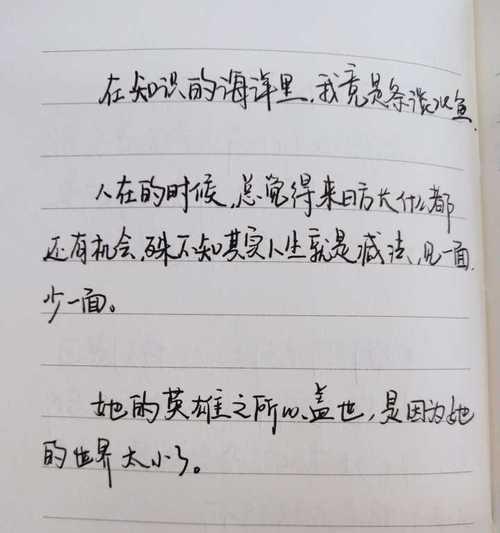 在知识的海洋里,我竟是条淡水鱼.
人在的时候,总觉得来日方长什么都
还有机会,殊不知其实人生就是减法,见一面
少一面。
她的英雄之所以盖世,是因为她
的世界太小了。